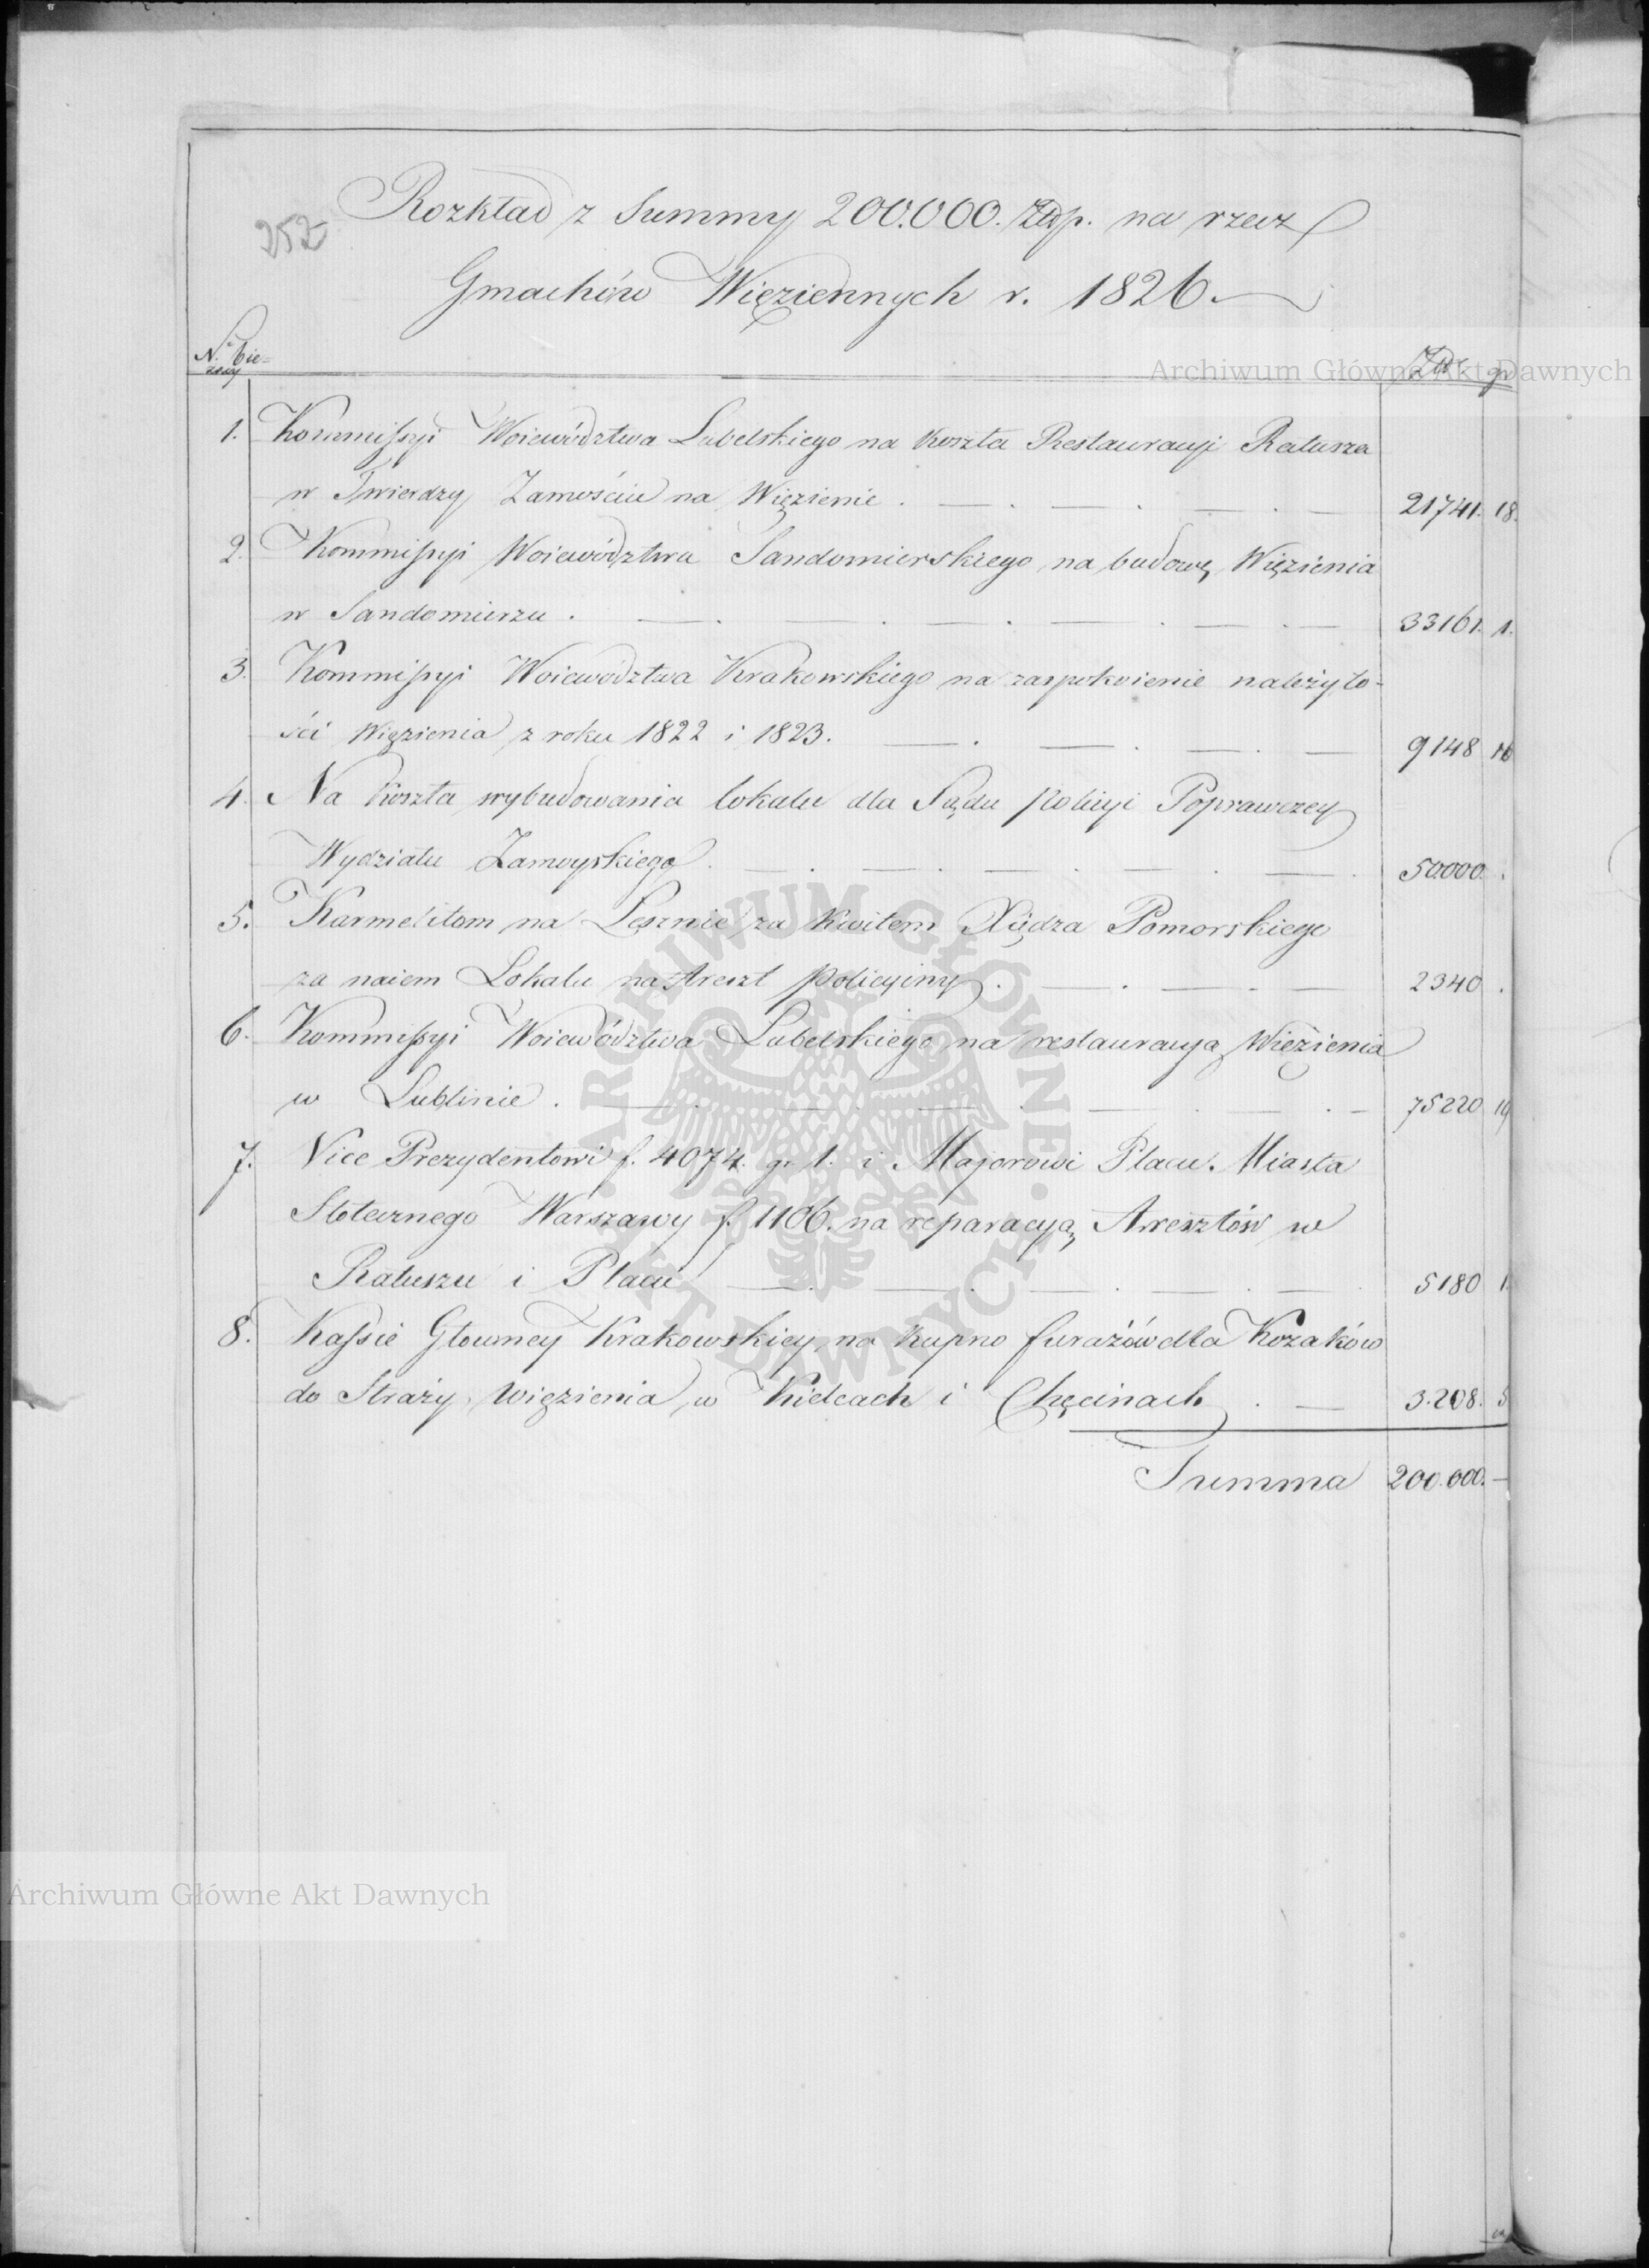 252
Rozkład z Summy 200.000. Złp. na rzecz
Gmachów Więziennych r. 1826.
N. bie=
żący
Złp gr
1. Kommissyi Woiewództwa Lubelskiego na koszta Restauracyi Ratusza
w Twierdzy Zamościu na Więzienie . 21741. 18.
2. Kommissyi Woiewództwa Sandomierskiego na budowę Więzienia
w Sandomierzu . 33161. 1.
3. Kommissyi Woiewództwa Krakowskiego na zaspokoienie należyto=
ści Więzienia z roku 1822 i 1823. 9148 16
4. Na koszta wybudowania lokalu dla Sądu Policyi Poprawczey
Wydziału Zamoyskiego . 50000. .
5. Karmelitom na Lesznie za kwitem Xiędza Pomorskiego
za naiem Lokalu na Areszt Policyiny . 2340 .
6. Kommissyi Woiewództwa Lubelskiego na restauracyą Więzienia
w Lublinie . 75220 19
7. Vice Prezydentowi f. 4074. gr 1. i Majorowi Placu Miasta
Stołecznego Warszawy f. 1106. na reparacyą Aresztów w
Ratuszu i Placu 5180 1.
8. Kassie Głowney Krakowskiey na kupno furażów dla Kozaków
do Straży Więzienia w Kielcach i Chęcinach . 3.208. 5
Summa 200.000. —
Archiwum Główne Akt Dawnych
ARCHIWUM GŁÓWNE AKT DAWNYCH
Archiwum Główne Akt Dawnych